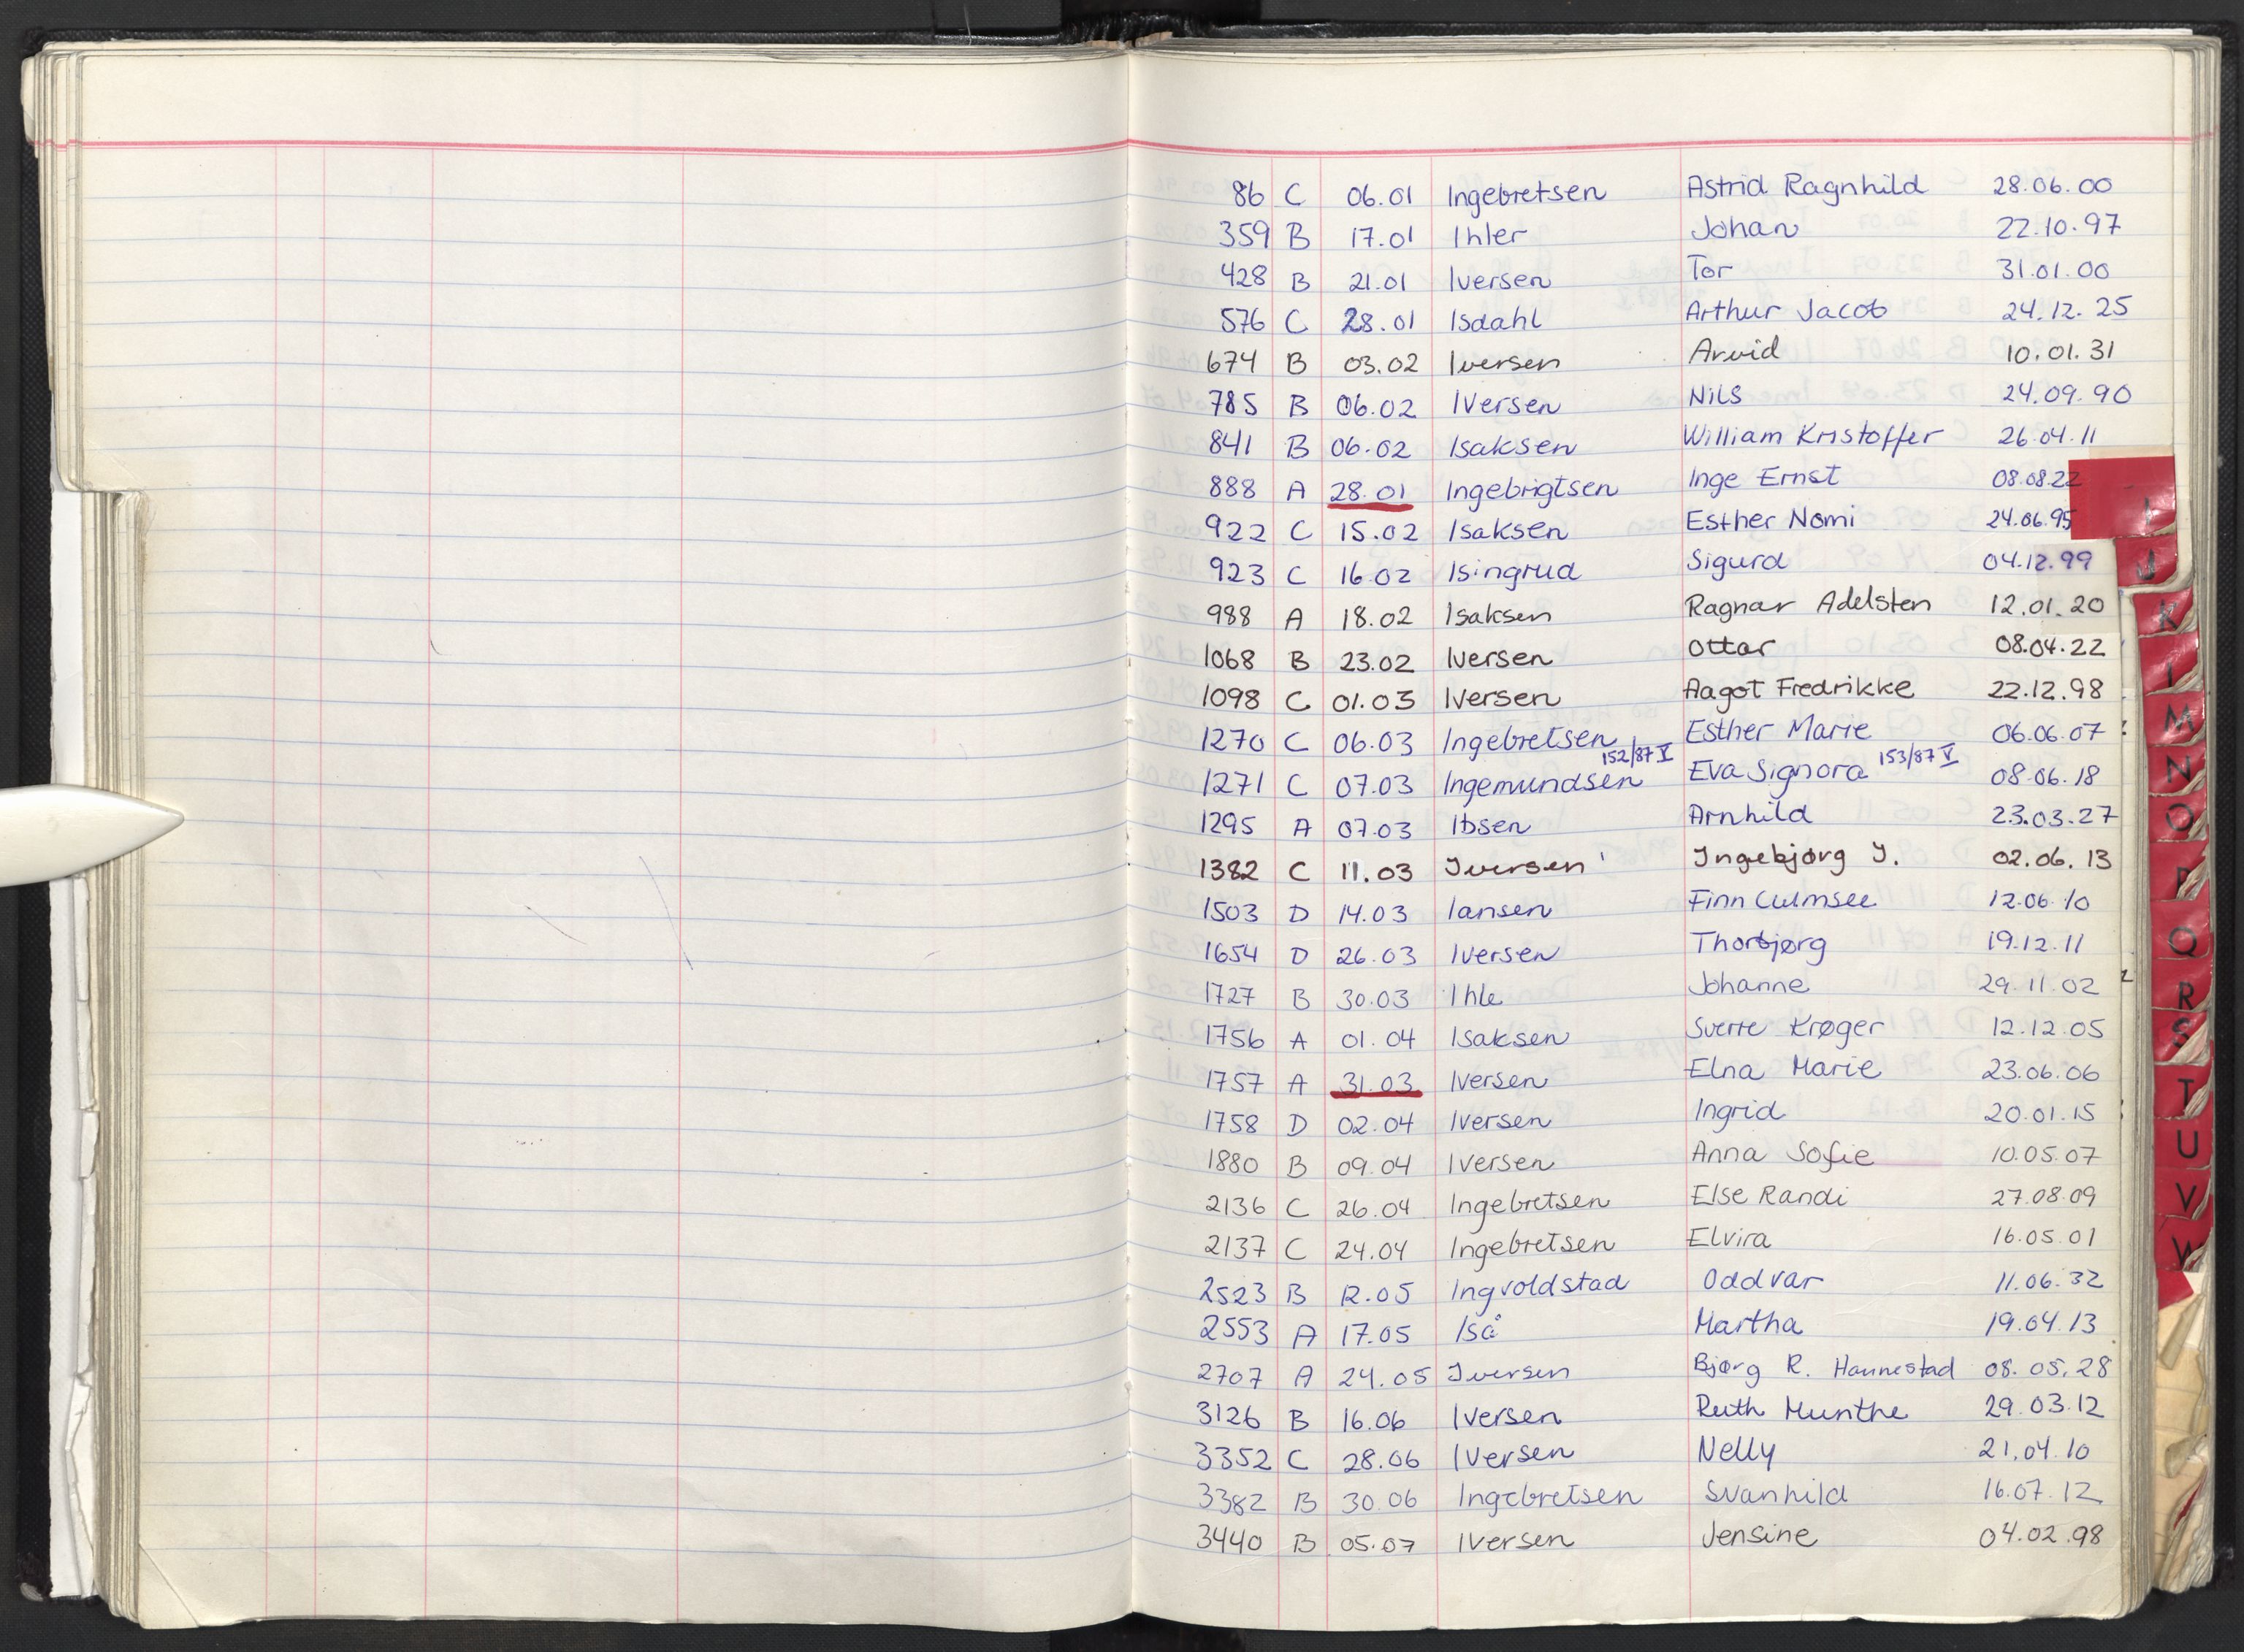 86 C 06.01 Ingebretsen Astrid Ragnhild 28.06.00
359 B 17.01 Ihler Johan 22.10.97
428 B 21.01 Iversen Tor 31.01.00
576 C 28.01 Isdahl Arthur Jacob 24.12.25
674 B 03.02 Iversen Arvid 10.01.31
785 B 06.02 Iversen Nils 24.09.90
841 B 06.02 Isaksen William Kristoffer 26.04.11
888 A 28.01 Ingebrigtsen Inge Ernst 08.08.22
922 C 15.02 Isaksen Esther Nomi 24.06.95
923 C 16.02 Isingrud Sigurd 04.12.99
988 A 18.02 Isaksen Ragnar Adelsten 12.01.20
1068 B 23.02 Iversen Ottar 08.04.22
1098 C 01.03 Iversen Aagot Fredrikke 22.12.98
1270 C 06.03 Ingebretsen Esther Marie 06.06.07
152/87 V 153/87 V
1271 C 07.03 Ingemundsen Eva Signora 08.06.18
1295 A 07.03 Ibsen Arnhild 23.03.27
1382 C 11.03 Iversen Ingebjørg J. 02.06.13
1503 D 14.03 Iansen Finn Culmsee 12.06.10
1654 D 26.03 Iversen Thorbjørg 19.12.11
1727 B 30.03 Ihle Johanne 29.11.02
1756 A 01.04 Isaksen Sverre Krøger 12.12.05
1757 A 31.03 Iversen Elna Marie 23.06.06
1758 D 02.04 Iversen Ingrid 20.01.15
1880 B 09.04 Iversen Anna Sofie 10.05.07
2136 C 26.04 Ingebretsen Else Randi 27.08.09
2137 C 24.04 Ingebretsen Elvira 16.05.01
2523 B 12.05 Ingvoldstad Oddvar 11.06.32
2553 A 17.05 Iså Martha 19.04.13
2707 A 24.05 Iversen Bjørg R. Hannestad 08.05.28
3126 B 16.06 Iversen Ruth Munthe 29.03.12
3352 C 28.06 Iversen Nelly 21.04.10
3382 B 30.06 Ingebretsen Svanhild 16.07.12
3440 B 05.07 Iversen Jensine 04.02.98
I
J
K
L
M
N
O
P
Q
R
S
T
U
V
W